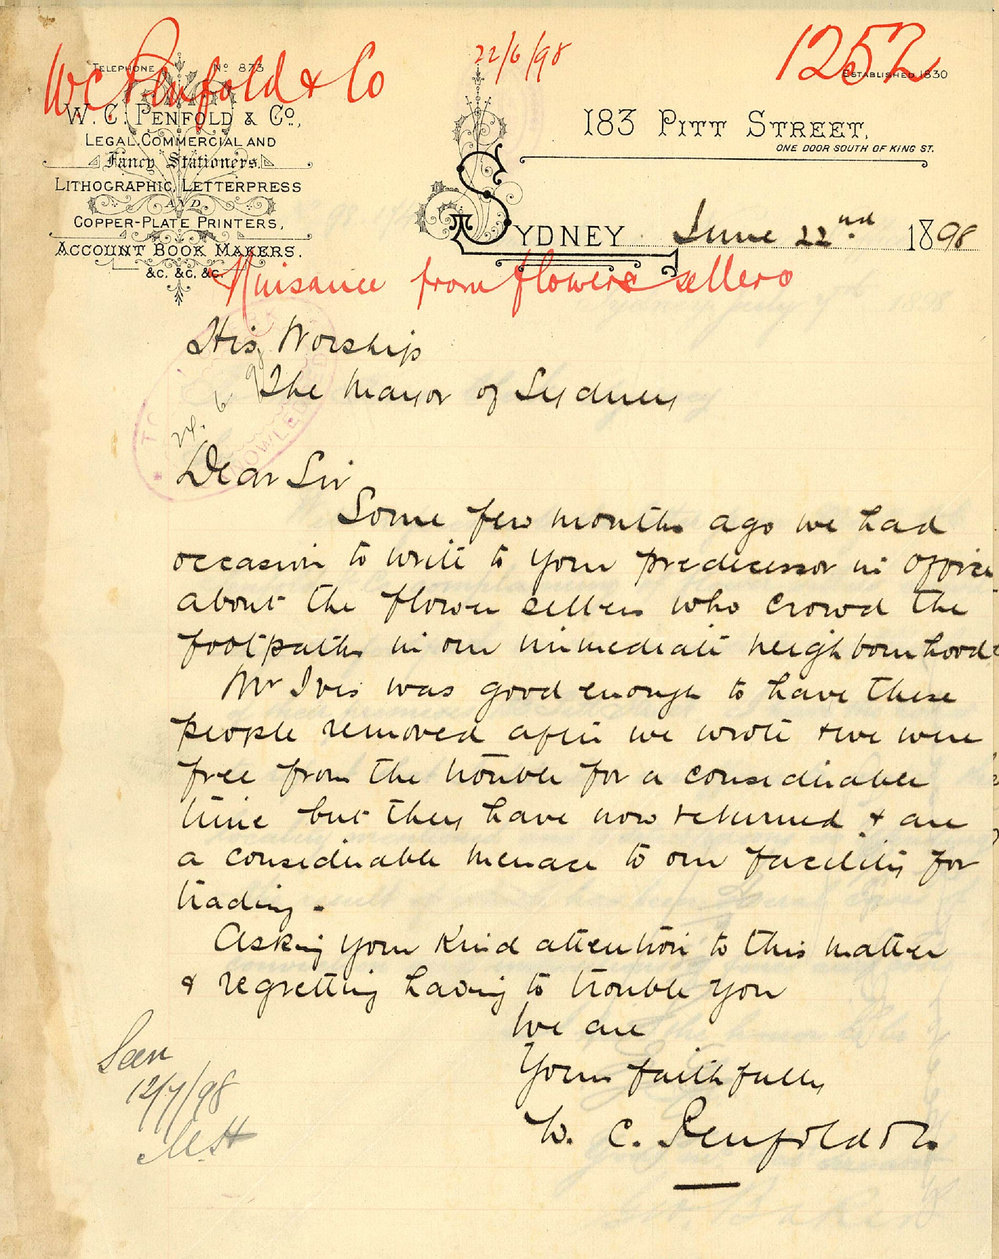 W.C. Penfold & Co
22/6/98
1252
TELEPHONE No 873
ESTABLISHED 1830
W. C. PENFOLD & Co.,
LEGAL, COMMERCIAL AND
Fancy Stationers,
LITHOGRAPHIC, LETTERPRESS
AND
COPPER-PLATE PRINTERS,
ACCOUNT BOOK MAKERS.
&c. &c. &c.
183 PITT STREET,
ONE DOOR SOUTH OF KING ST.
SYDNEY June 22nd 1898
Nuisance from flower sellers
His Worship
The Mayor of Sydney
Dear Sir
Some few months ago we had
occasion to write to your predecessor in office
about the flower sellers who crowd the
footpaths in our immediate neighbourhood
Mr Ives was good enough to have these
people removed after we wrote & we were
free from the trouble for a considerable
time but they have now returned & are
a considerable menace to our facility for
trading.
Asking your kind attention to this matter
& regretting having to trouble you
We are
Yours faithfully
W. C. Penfold & Co
Seen
12/7/98